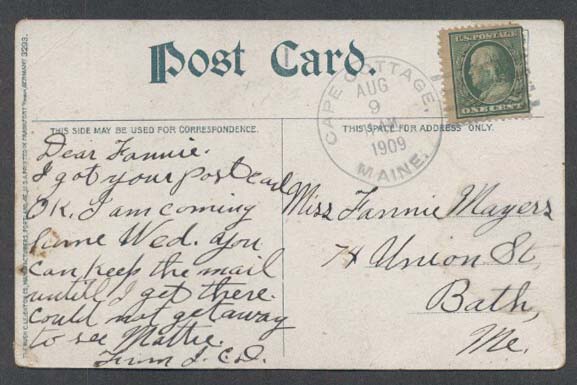 Post Card.
U.S. POSTAGE
ONE CENT
CAPE COTTAGE
AUG
9
AM
1909
MAINE.
THIS SIDE MAY BE USED FOR CORRESPONDENCE.
THIS SPACE FOR ADDRESS ONLY.
Dear Fannie.
I got your post card
OK. I am coming
home Wed. you
can keep the mail
untill I get there.
could not get away
to see Mattie.
From J. C. D.
Miss Fannie Mayers
74 Union St,
Bath,
Me.